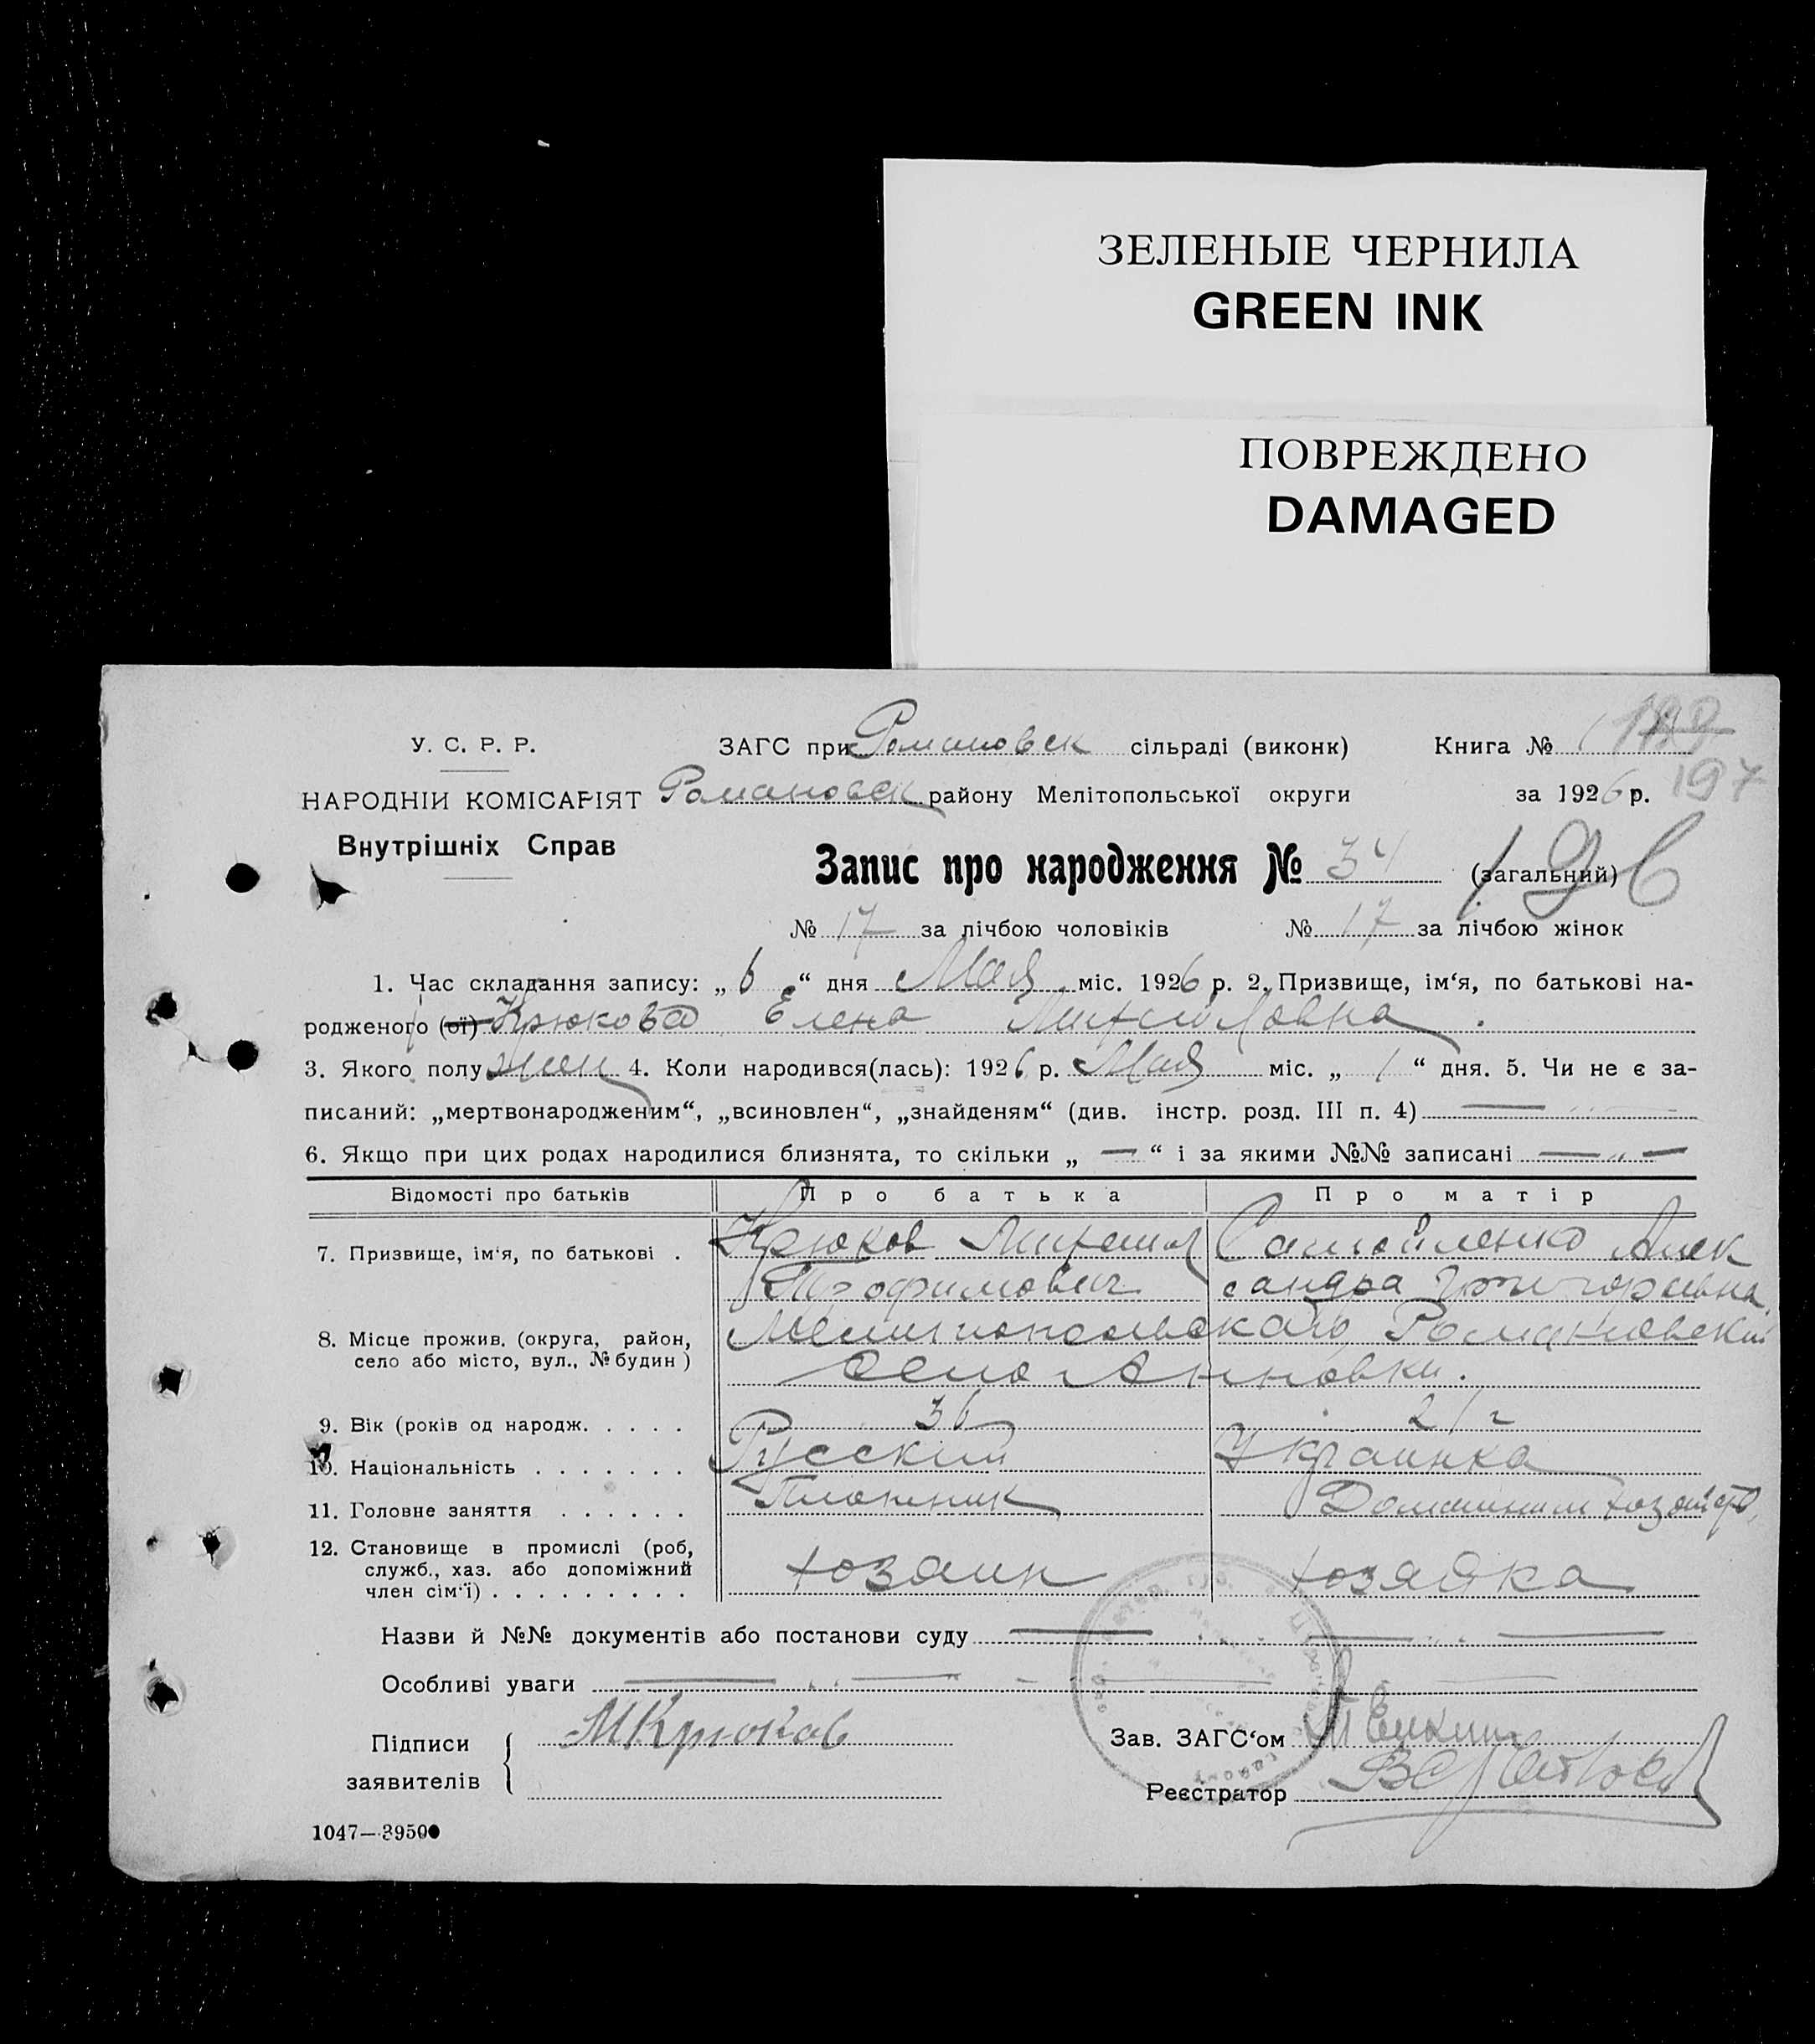 ЗЕЛЕНЫЕ ЧЕРНИЛА
GREEN INK
ПОВРЕЖДЕНО
DAMAGED
У. С. Р. Р.
НАРОДНІИ КОМІСАРІЯТ
Внутрішніх Справ
ЗАГС при Романовск сільраді (виконк) Книга № 1
Романовск району Мелітопольської округи за 1926 р. 197
Запис про народження № 34 (загальний)
№ 17 за лічбою чоловіків № 17 за лічбою жінок
1. Час складання запису: „ 6 “ дня Мая міс. 1926 р. 2. Призвище, ім‘я, по батькові на-
родженого (ої) Крюкова Елена Михайловна
3. Якого полу жен 4. Коли народився(лась): 1926 р. Мая міс. „ 1 “ дня. 5. Чи не є за-
писаний: „мертвонародженим“, „всиновлен“, „знайденям“ (див. інстр. розд. III п. 4)
6. Якщо при цих родах народилися близнята, то скільки „ — “ і за якими №№ записані
Відомості про батьків Про батька Про матір
7. Призвище, ім‘я, по батькові . Крюков Михаил Самойленко Алек
Трофимович сандра Григорьевна
8. Місце прожив. (округа, район, село або місто, вул., № будин ) Мелитопольскаго Романовский
село Анновки.
9. Вік (років од народж. . . . . 36 21 г
10. Національність . . . . . . . Русский Украинка
11. Головне заняття . . . . . . Плотник Домашним
12. Становище в промислі (роб,
служб., хаз. або допоміжний
член сім‘ї) . . . . . . . . . хозаин хозяйка
Назви й №№ документів або постанови суду
Особливі уваги
Підписи заявителів МКрюков
Зав. ЗАГС‘ом
Реєстратор
1047—39500